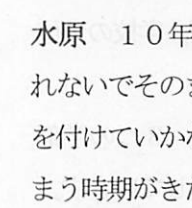 水原　１０年
れないでその
を付けていか
まう時期がき